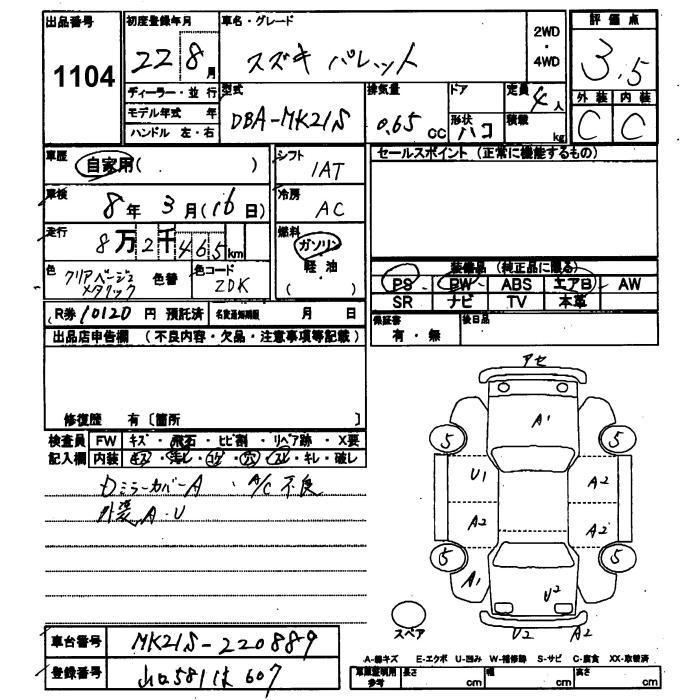 出品番号 1104
初度登録年月 22 8月
車名・グレード スズキ パレット
2WD・4WD
評価点 3.5
外装 C 内装 C
ディーラー・並行
モデル年式 年
ハンドル 左・右
型式 DBA-MK21S
排気量 0.65 CC
ドア
形状 ハコ
定員 4人
積載 kg
車歴 自家用( )
シフト IAT
セールスポイント (正常に機能するもの)
車検 8年3月(16日)
冷房 AC
走行 8万2千465km
燃料 ガソリン 軽・油 ( )
色 クリアベージュメタリック 色替
色コード ZDK
装備品 (純正品に限る)
PS PW ABS エアB AW
SR ナビ TV 本革
R券 10120 円 預託済 名変通知期限 月 日
保証書 有・無
後日品
出品店申告欄 (不良内容・欠品・注意事項等記載)
修復歴 有〔箇所 〕
検査員 FW キズ・飛石・ヒビ割・リペア跡・X要
記入欄 内装 キズ・汚レ・コゲ・穴・スレ・キレ・破レ
Dミラーカバー A ・A/C不良
外装 A・U
アセ
A1
5 5
U1 A2
A2 A2
5 5
A1 U2
スペア U2 A2
車台番号 MK21S-220889
登録番号 山口581 607
A-線キズ E-エクボ U-凹み W-補修跡 S-サビ C-腐食 XX-取替済
車両査積用参考 長さ cm 幅 cm 高さ cm